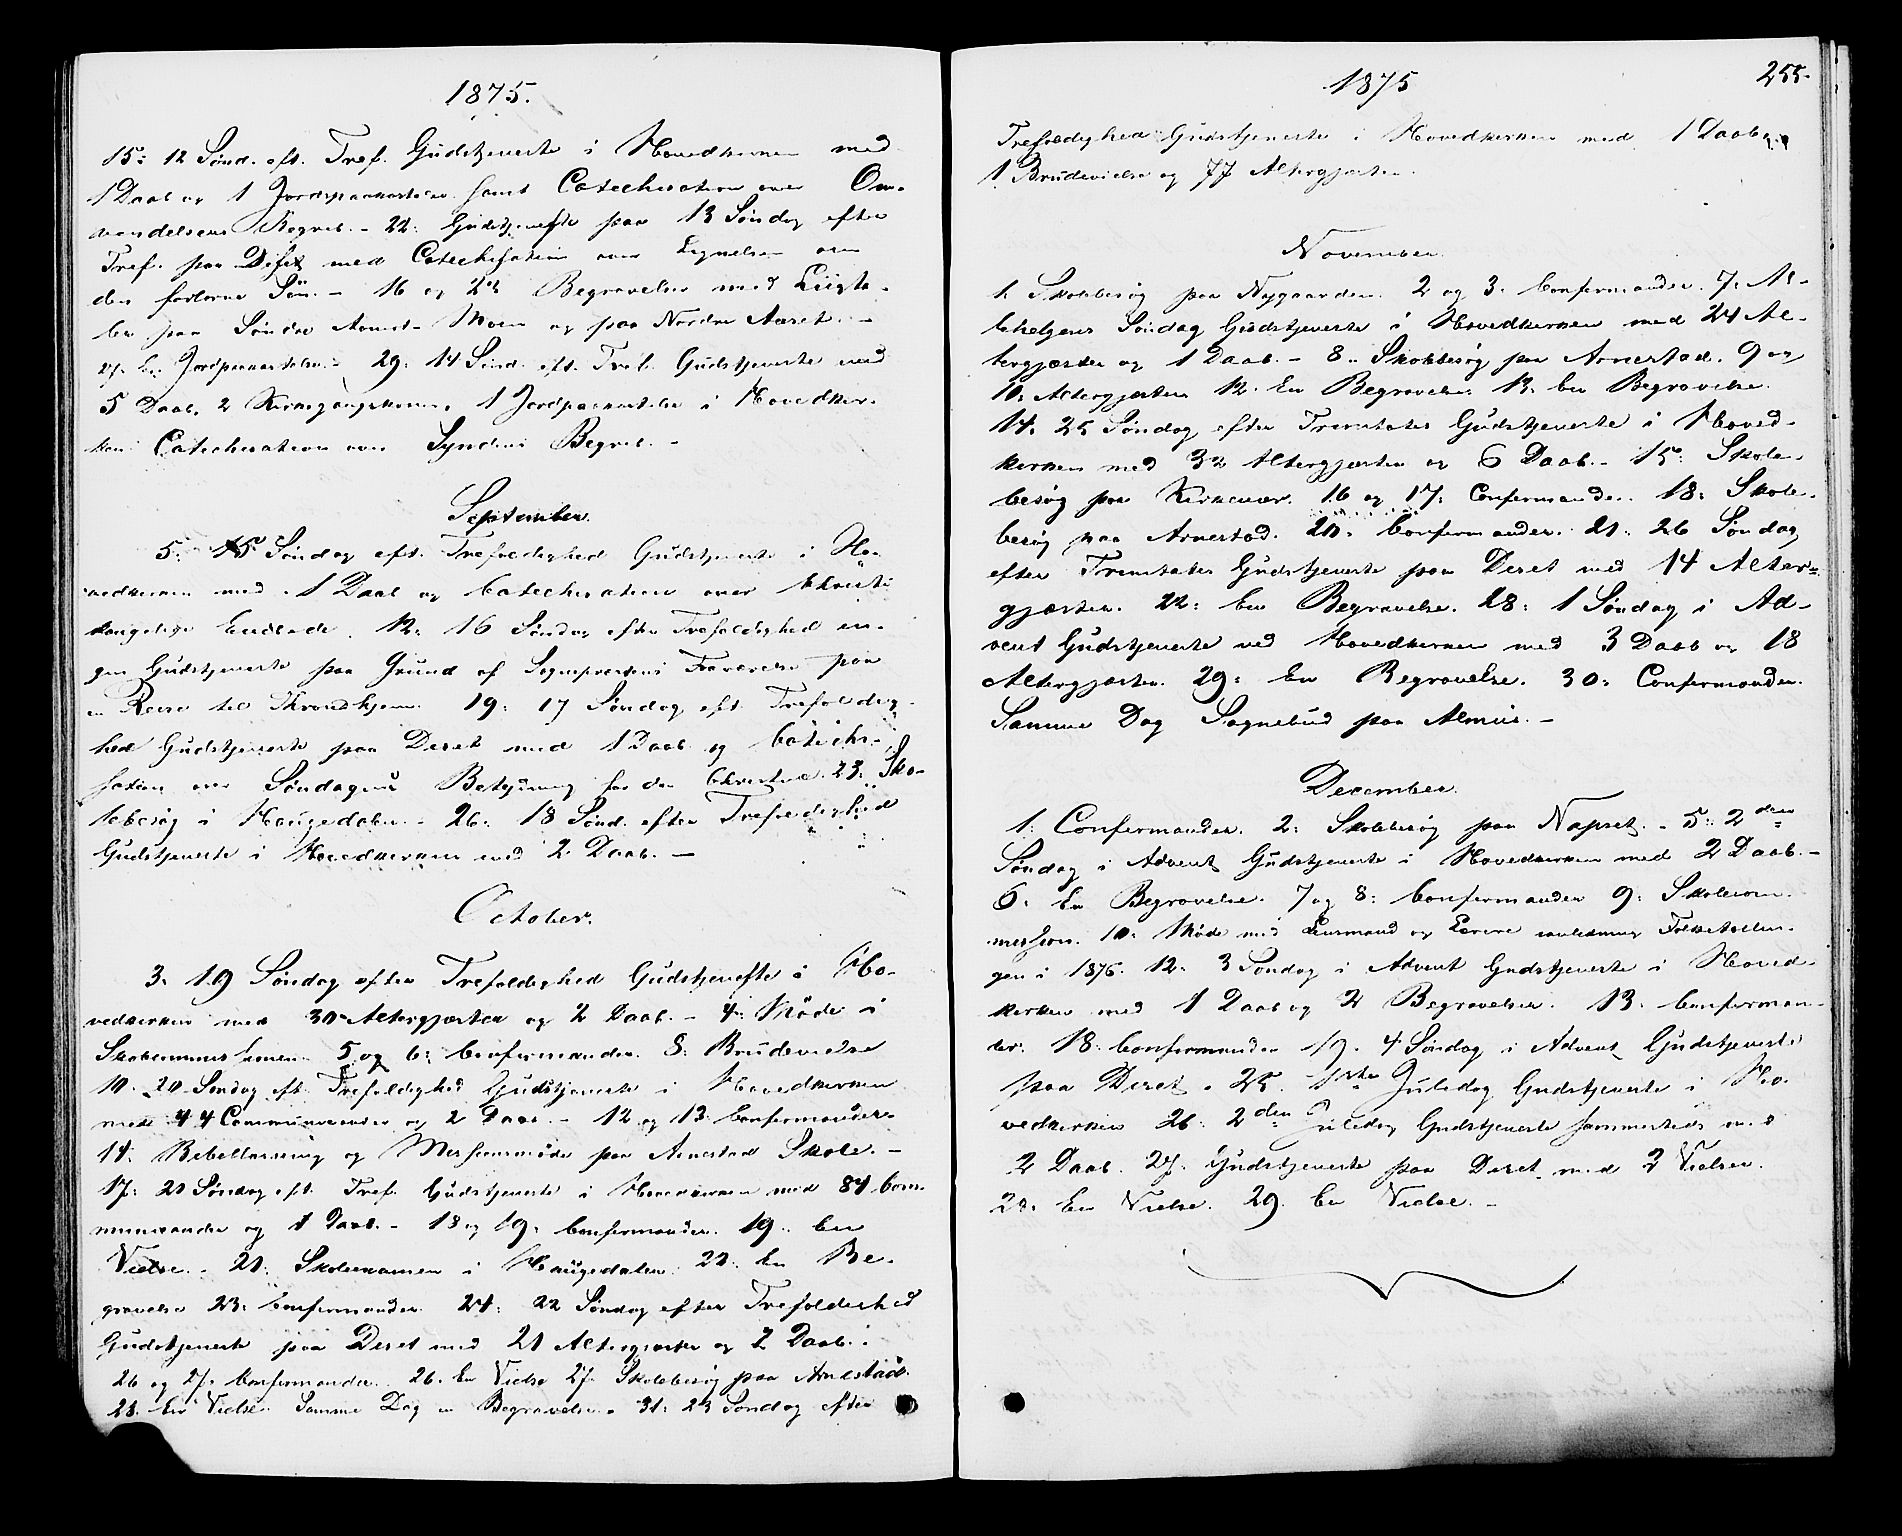 1875.
15: 12 Sönd. eft. Tref. Gudstjeneste i Hovedkirken med
1 Daab og 1 Jordspaakastelse samt Catechisation over Om-
vendelsens Begreb. - 22: Gudstjeneste paa 13 Söndag efter
Tref. paa med Catechisation over Lignelsen om
den forlorne Sön. - 16 og 23 Begravelse med Liigta-
ler paa Söndre Arnest- Moen og paa Nordre Aaset. -
27. En Jordpaakastelse. - 29: 14 Sönd. eft. Tref. Gudstjeneste med
5 Daab, 2 Kirkegangskoner, 1 Jordpaakastelse i Hovedkir-
ken. Catechisation over Syndens Begreb. -
September.
5: 15 Söndag eft. Trefoldighed Gudstjeneste i Ho-
vedkirken med 1 Daab og Catechisation over Christi
kongelige Embede. 12: 16 Söndag efter Trefoldighed in-
gen Gudstjeneste paa Grund af Sognepræstens Fravær paa
en Reise til Throndhjem. 19: 17 Söndag eft. Trefoldig-
hed Gudstjeneste paa Deset med 1 Daab og Catechi-
sation over Söndagens Betydning for den Christne. 23: Sko-
lebesög i Haugedalen. - 26: 18 Sönd. efter Trefoldighed
Gudstjeneste i Hovedkirken med 2 Daab. -
October.
3: 19 Söndag efter Trefoldighed Gudstjeneste i Ho-
vedkirken med 30 Altergjæster og 2 Daab. - 4: Möde i
Skolecommissionen. 5 og 6: Confirmander. 8: Brudevielse
10. 20 Söndag eft. Trefoldighed Gudstjeneste i Hovedkirken
med 44 Communicanter og 2 Daab. - 12 og 13: Confirmander.
14. Bibellæsning og Missionsmöde paa Arnestad Skole. -
17: 21 Söndag eft. Tref. Gudstjeneste i Hovedkirken med 84 Com-
municanter og 1 Daab. - 18 og 19: Confirmander. 19: En
Vielse. - 21. Skoleexamen i Haugedalen. 22: En Be-
gravelse 23: Confirmander. 24: 22 Söndag efter Trefoldighed
Gudstjeneste paa Deset med 21 Altergjæster og 2 Daab.
26 og 27. Confirmander. 26. En Vielse 27. Skolebesög paa Arnestad.
28. En Vielse. Samme Dag en Begravelse. 31: 23 Söndag efter
1875
255.
Trefoldighed Gudstjeneste i Hovedkirken med 1 Daab,
1 Brudevielse og 77 Altergjæster.
November.
1. Skolebesög paa Nygaarden. 2 og 3: Confirmander. 7: Al-
lehelgens Söndag Gudstjeneste i Hovedkirken med 24 Al-
tergjæster og 1 Daab. - 8. Skolebesög paa Arnestad. 9 og
10. Altergjæster. 12. En Begravelse. 13: En Begravelse.
14: 25 Söndag efter Trinitatis Gudstjeneste i Hoved-
kirken med 32 Altergjæster og 6 Daab. - 15: Skole-
besög paa Kirkenær. 16 og 17: Confirmander. 18: Skole-
besög paa Arnestad. 20: Confirmander. 21: 26 Söndag
efter Trinitatis Gudstjeneste paa Deset med 14 Alter-
gjæster. 22: En Begravelse. 28: 1 Söndag i Ad-
vent Gudstjeneste ved Hovedkirken med 3 Daab og 18
Altergjæster. 29: En Begravelse. 30: Confirmander.
Samme Dag Sognebud paa Almus. -
December.
1: Confirmander. 2: Skolebesög paa Napset. - 5: 2den
Söndag i Advent Gudstjeneste i Hovedkirken med 2 Daab. -
6: En Begravelse. 7 og 8: Confirmander 9: Skolecom-
mission. 10: Möde med Lensmand og Lærere Folketællin-
gen i 1876. 12: 3 Söndag i Advent Gudstjeneste i Hoved-
kirken med 1 Daab og 2 Begravelser. 13: Confirman-
der. 18: Confirmander 19. 4 Söndag i Advent Gudstjeneste
paa Deset. 25. 1ste Juledag Gudstjeneste i Ho-
vedkirken 26: 2den Juledag Gudstjeneste sammesteds med
2 Daab. 27. Gudstjeneste paa Deset med 3 Vielser.
28: En Vielse. 29. En Vielse. -